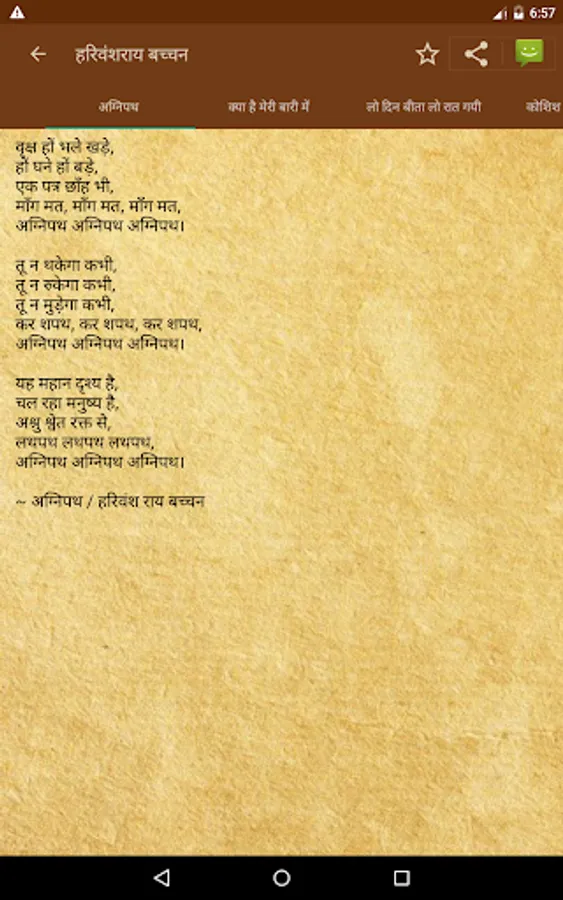 6:57
हरिवंशराय बच्चन
अग्निपथ क्या है मेरी बारी में लो दिन बीता लो रात गयी कोशिश
वृक्ष हों भले खड़े,
हों घने हों बड़े,
एक पत्र छाँह भी,
माँग मत, माँग मत, माँग मत,
अग्निपथ अग्निपथ अग्निपथ।
तू न थकेगा कभी,
तू न रुकेगा कभी,
तू न मुड़ेगा कभी,
कर शपथ, कर शपथ, कर शपथ,
अग्निपथ अग्निपथ अग्निपथ।
यह महान दृश्य है,
चल रहा मनुष्य है,
अश्रु श्वेत रक्त से,
लथपथ लथपथ लथपथ,
अग्निपथ अग्निपथ अग्निपथ।
~ अग्निपथ / हरिवंश राय बच्चन